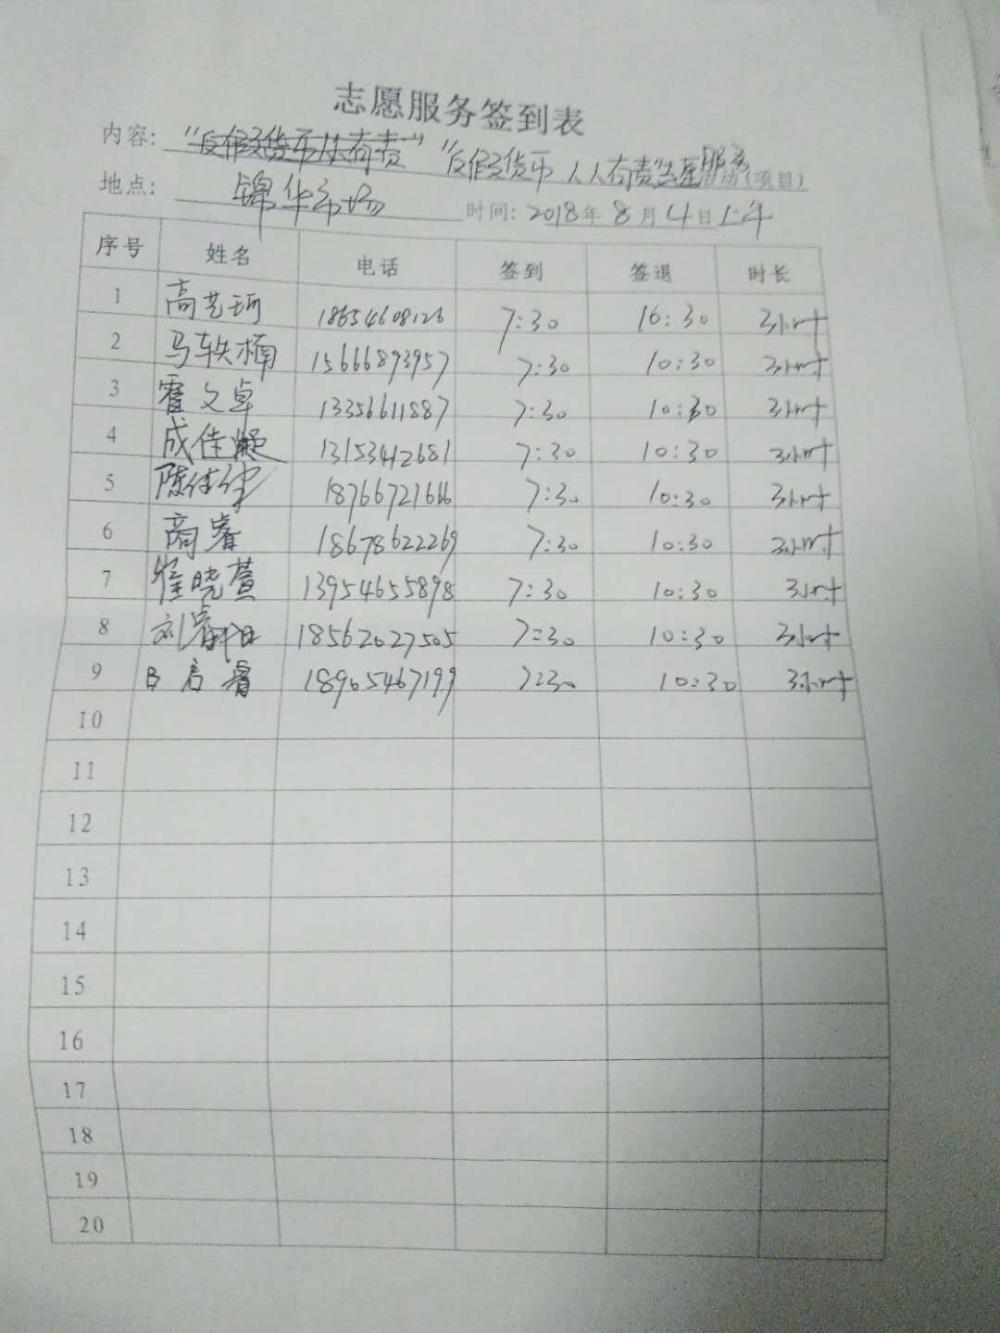 志愿服务签到表
内容: "反假货币人人有责" "反假货币 人人有责"志愿服务活动(项目)
地点: 锦华市场 时间: 2018年8月4日上午
序号 姓名 电话 签到 签退 时长
1 高艺珂 18654608126 7:30 10:30 3小时
2 马轶楠 15666893957 7:30 10:30 3小时
3 霍文卓 13356611587 7:30 10:30 3小时
4 成佳凝 13153412681 7:30 10:30 3小时
5 陈佳 18766721616 7:30 10:30 3小时
6 商睿 18678622269 7:30 10:30 3小时
7 崔晓萱 13954655898 7:30 10:30 3小时
8 刘睿 18562027505 7:30 10:30 3小时
9 启睿 18905467199 7:30 10:30 3小时
10
11
12
13
14
15
16
17
18
19
20